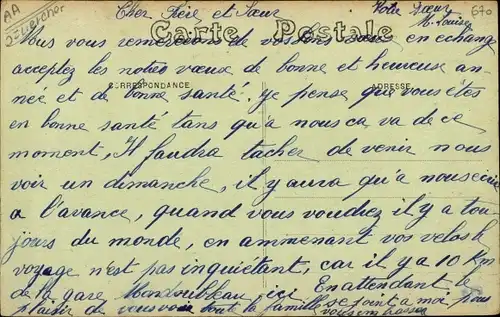 AA
à chercher
670
Cher Frère et Sœur Votre Sœur
M. Louise
Carte Postale
CORRESPONDANCE ADRESSE
Nous vous remercions de vos bons vœux en échang
acceptez les notres vœux de bonne et heureuse an-
née et de bonne santé. Je pense que vous êtes
en bonne santé tans qu'a nous ca va de ce
moment, Il faudra tacher de venir nous
voir un dimanche, il y aura qu'a nous écrire
a l'avance, quand vous voudrez il y a tou
jours du monde, en ammenant vos velos le
voyage n'est pas inquiétant, car il y a 10 Km
de la gare ici En attendant le
plaisir de vous voir toute la famille se joint a moi pour
vous embrasser